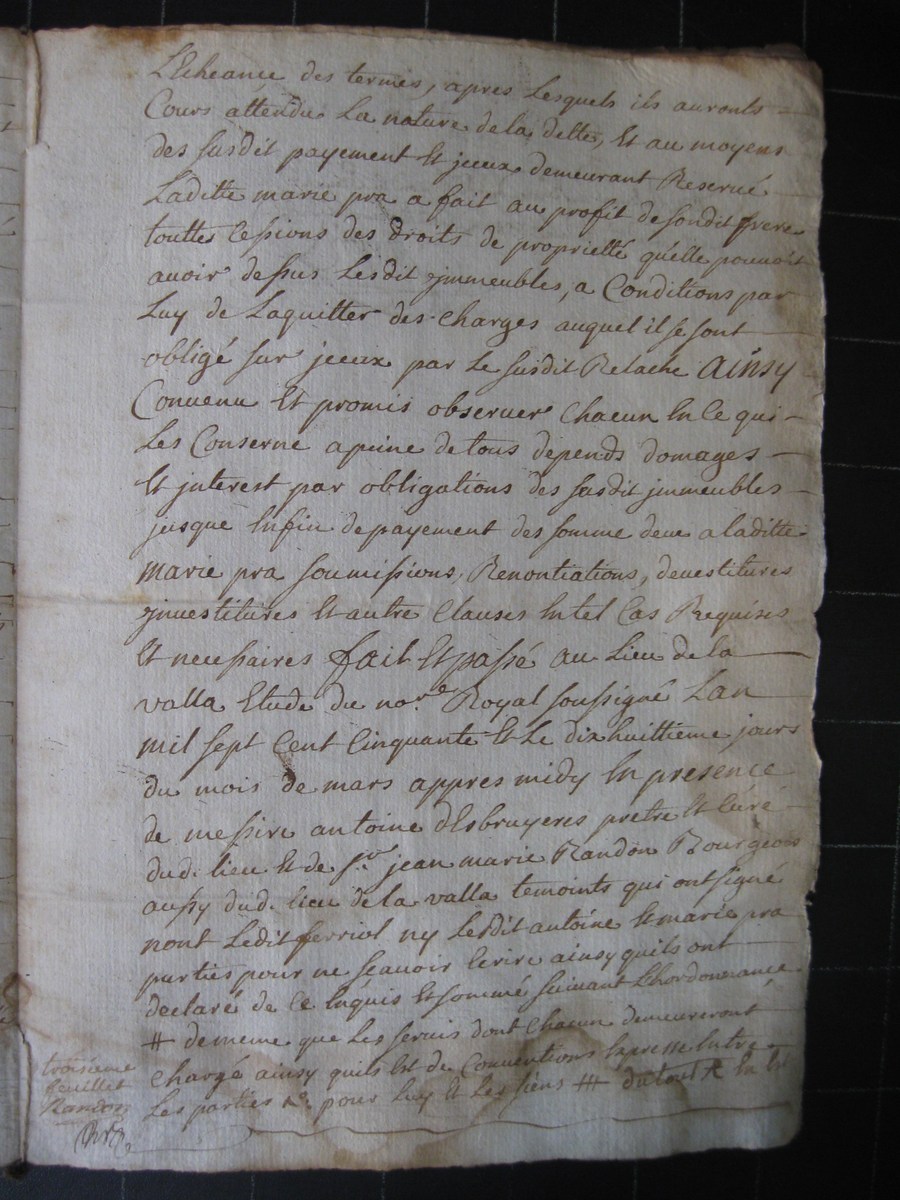 L'Echeance des termes, apres Lesquels ils auronts
Cours attendu La nature de la dette, Et au moyens
des susdit payement Et jceux demeurant Reservé
Laditte marie pra a fait au profit de sondit frere
touttes Cessions des droits de proprietté qu'elle pouvoit
avoir dessus Lesdit jmmeubles, a Conditions par
Luy de Laquitter des charges auquel il se sont
obligé sur jceux par Le susdit Relache Ainsy
Convenu Et promis observer Chacun En Ce qui
Les Conserne a peine de tous depends domages
Et jnterest par obligations des susdit jmmeubles
jusque Enfin de payement des somme deue a laditte
marie pra soumissions, Renontiations, devestitures
jnvestitures Et autre Clauses En tel Cas Requises
Et necessaires fait Et passé au Lieu de la
valla Etude du no.re Royal soussigné Lan
mil sept Cent Cinquante Et Le dix huittieme jours
du mois de mars appres midy En presence
de messire antoine desbruyeres pretre Et Curé
dud. lieu Et de Sr. jean marie Randon Bourgeois
aussy dud. lieu de la valla temoints qui ont signé
nont Ledit ferriol ny Lesdit antoine Et marie pra
parties pour ne sçavoir Ecrire ainsy quils ont
declaré de Ce Enquis Et sommé suivant Lhordonnance
# de meme que Les servis dont Chacun demeureront
Chargé ainsy quils Est de Conventions Expresse Entre
Les parties pour Luy Et Les siens # du tout
troisieme
feuillet
Randon